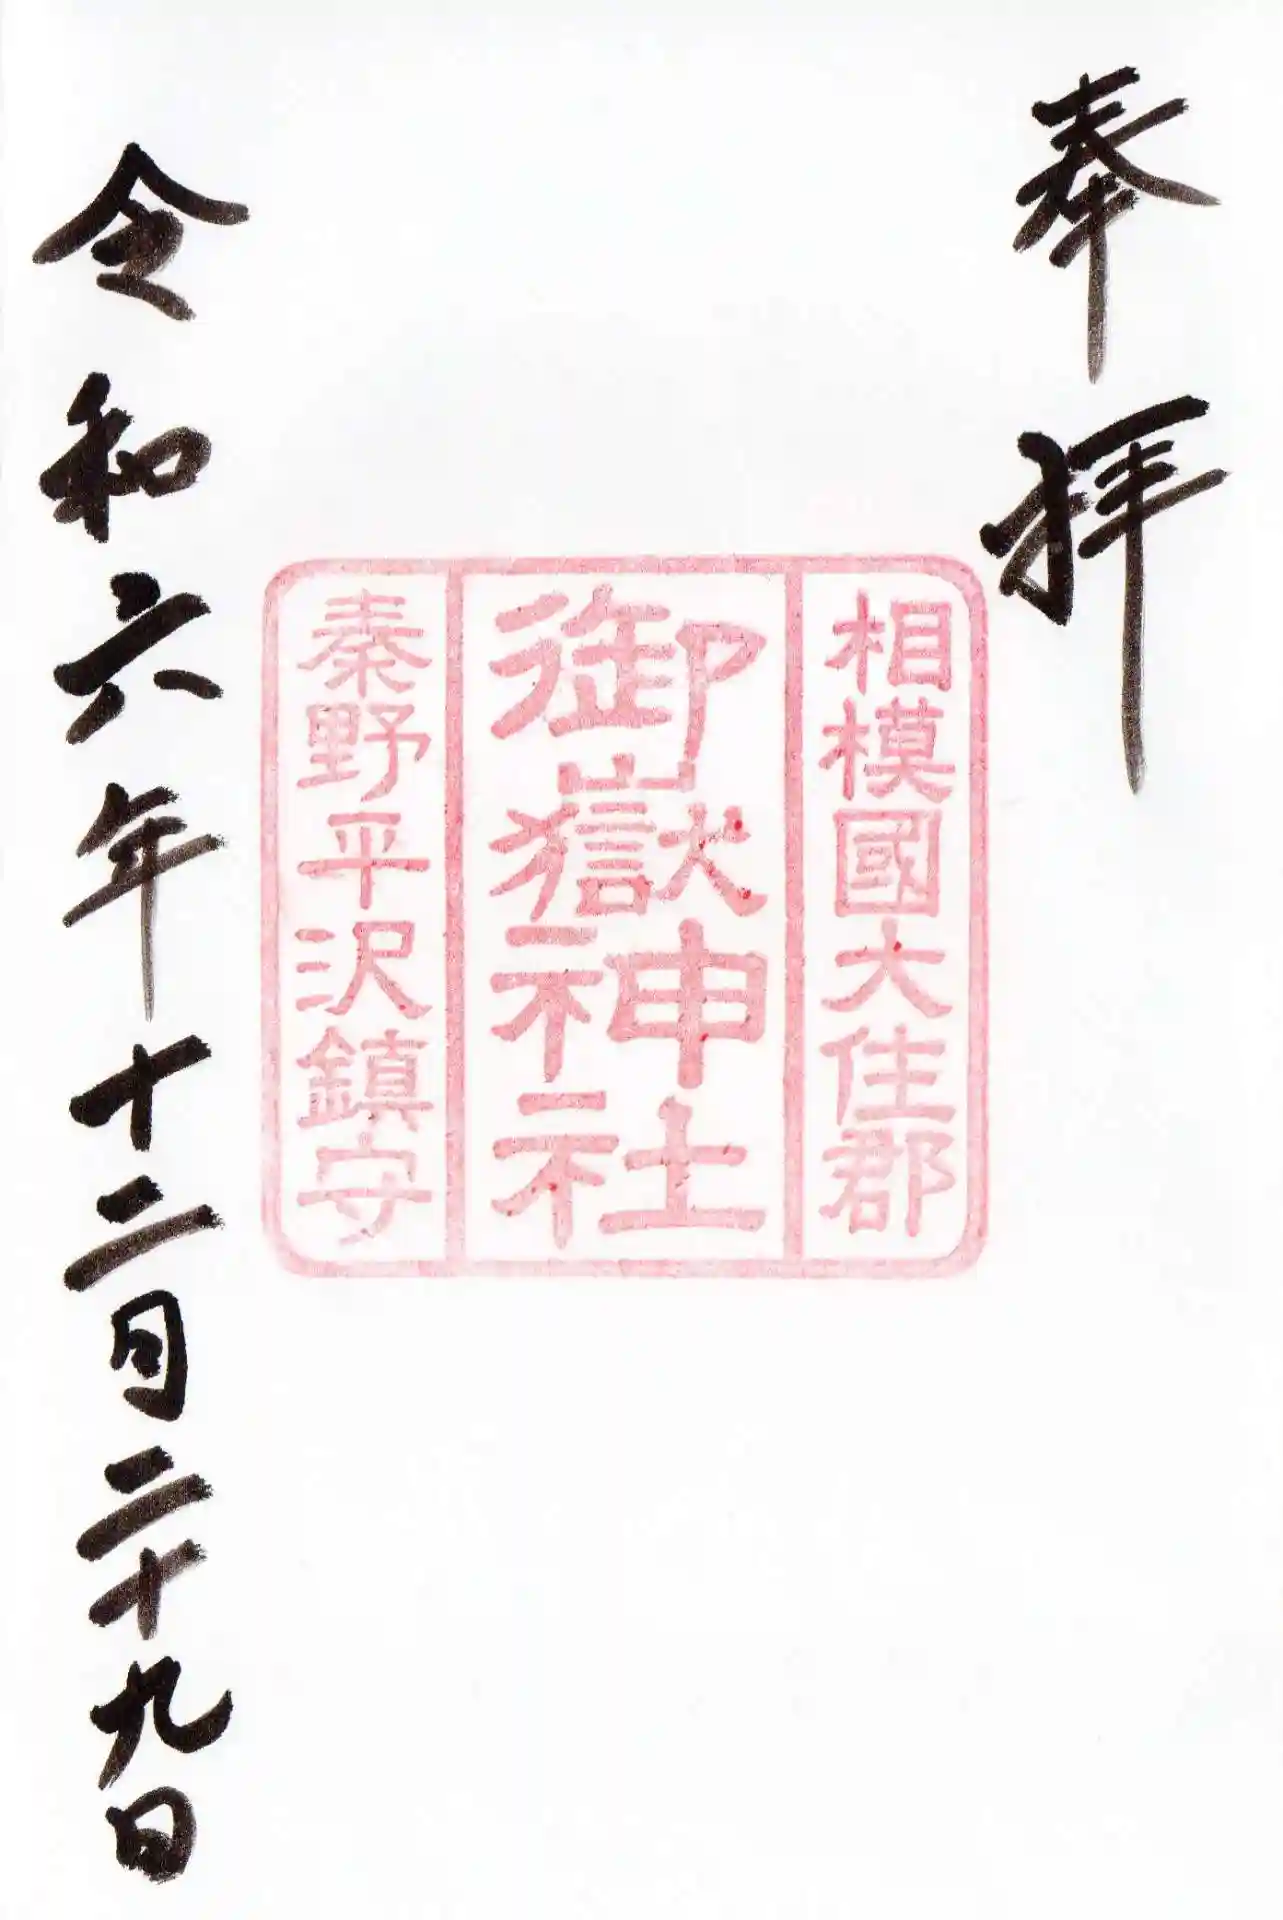 奉拝
相模國大住郡
御嶽神社
秦野平沢鎮守
令和六年十二月二十九日